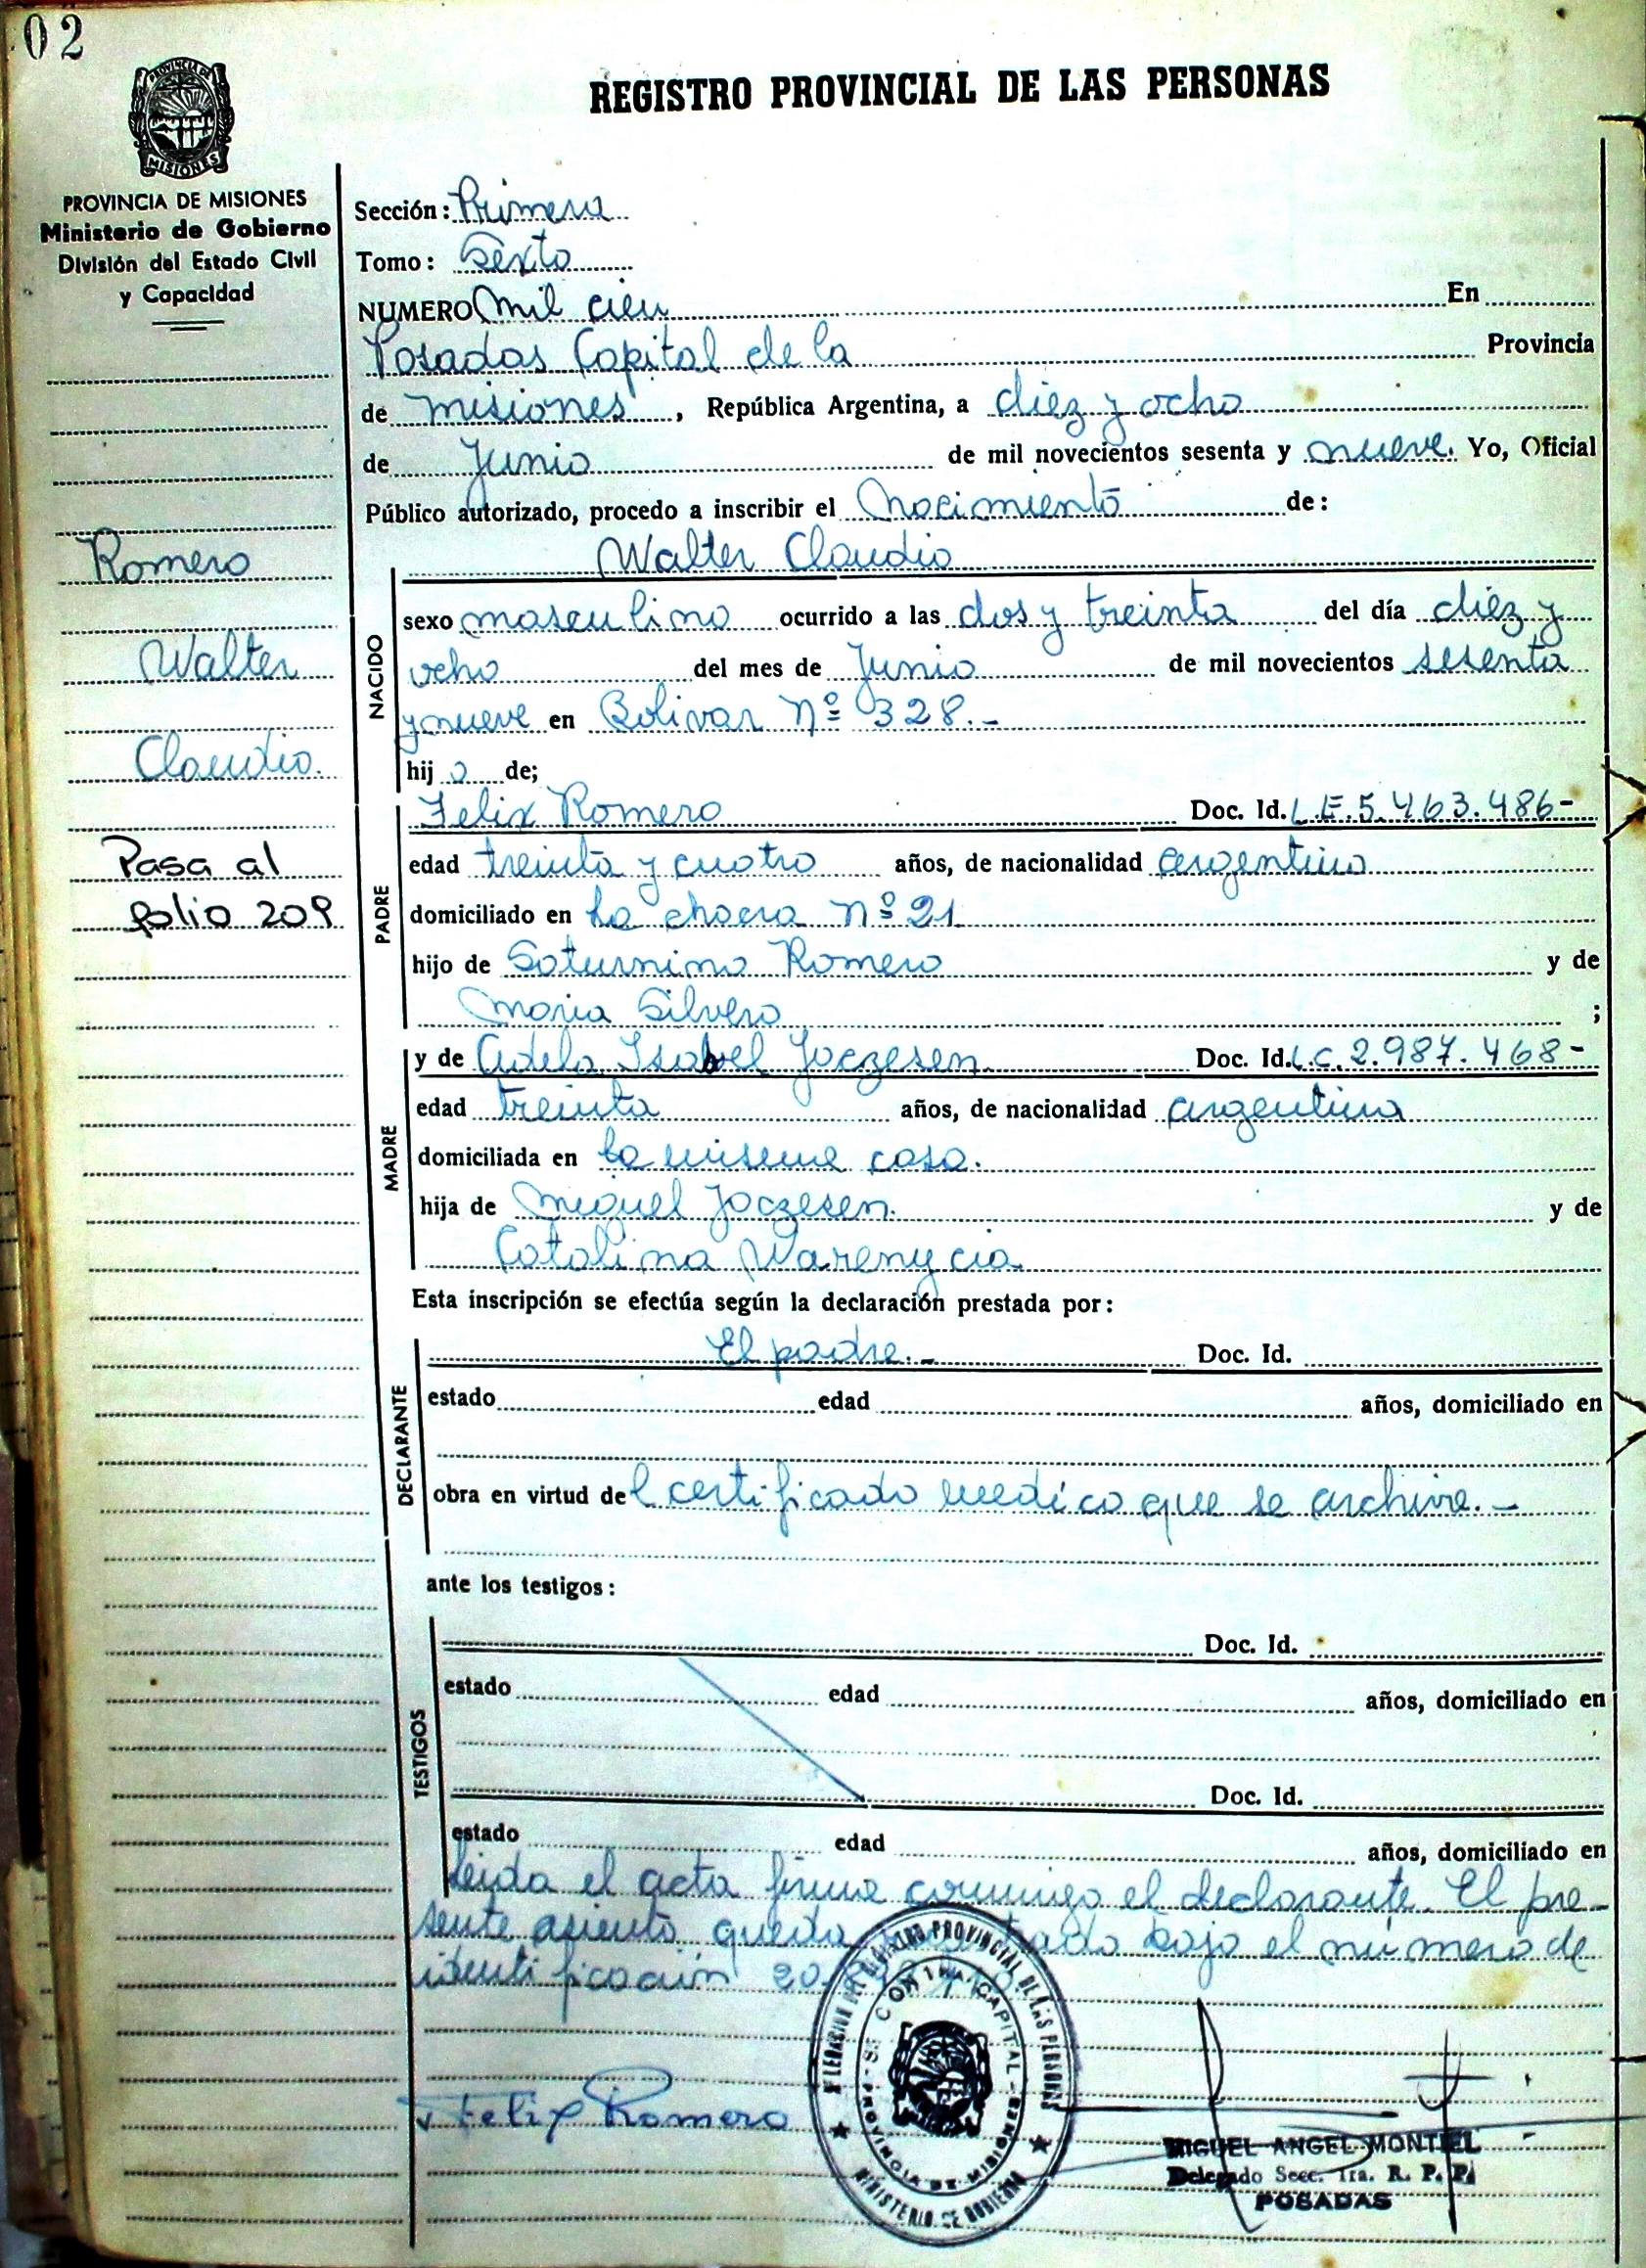 02
PROVINCIA DE MISIONES
REGISTRO PROVINCIAL DE LAS PERSONAS
PROVINCIA DE MISIONES
Ministerio de Gobierno
División del Estado Civil
y Capacidad
Romero
Walter
Claudio.
Pasa al
folio 209
Sección: Primera
Tomo: Sexto
NUMERO mil cien En
Posadas Capital de la Provincia
de misiones, República Argentina, a diez y ocho
de Junio de mil novecientos sesenta y nueve. Yo, Oficial
Público autorizado, procedo a inscribir el Nacimiento de:
Walter Claudio
NACIDO
sexo masculino ocurrido a las dos y treinta del día diez y
ocho del mes de Junio de mil novecientos sesenta
y nueve en Bolivar Nº 328.-
hijo de;
PADRE
Felix Romero Doc. Id. L.E. 5.463.486-
edad treinta y cuatro años, de nacionalidad argentino
domiciliado en La chacra Nº 21
hijo de Saturnino Romero y de
Maria Silvero ;
MADRE
y de Adela Isabel Joczesen Doc. Id. L.C. 2.987.468-
edad treinta años, de nacionalidad argentina
domiciliada en la misma casa.
hija de Miguel Joczesen. y de
Catalina Warenycia
Esta inscripción se efectúa según la declaración prestada por:
DECLARANTE
El padre.- Doc. Id.
estado edad años, domiciliado en
obra en virtud del certificado medico que se archiva.-
ante los testigos:
TESTIGOS
Doc. Id.
estado edad años, domiciliado en
Doc. Id.
estado edad años, domiciliado en
Leida el acta firma conmigo el declarante. El pre-
sente asiento queda bajo el número de
identificación 20.
Felix Romero
DEL REGISTRO PROVINCIAL DE LAS PERSONAS
CAPITAL - PROVINCIA DE MISIONES
MINISTERIO DE GOBIERNO
MIGUEL ANGEL MONTIEL
Delegado Secc. 1ra. R. P. P.
POSADAS